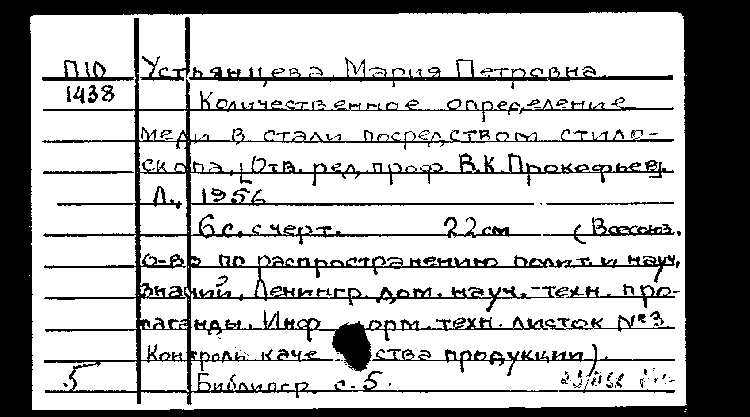 П10 Устьянцева Мария Петровна
1438 Количественное определение
меди в стали посредством стило-
скопа. [Отв. ред. проф. В.К.Прокофьев].
Л., 1956
6 с. с черт. 22 см (Всесоюз.
о-во по распространению полит. и науч.
знаний. Ленингр. дом. науч.-техн. про-
паганды. Инф орм.-техн. листок №3
Контроль каче ства продукции).
5 Библиогр. с. 5.